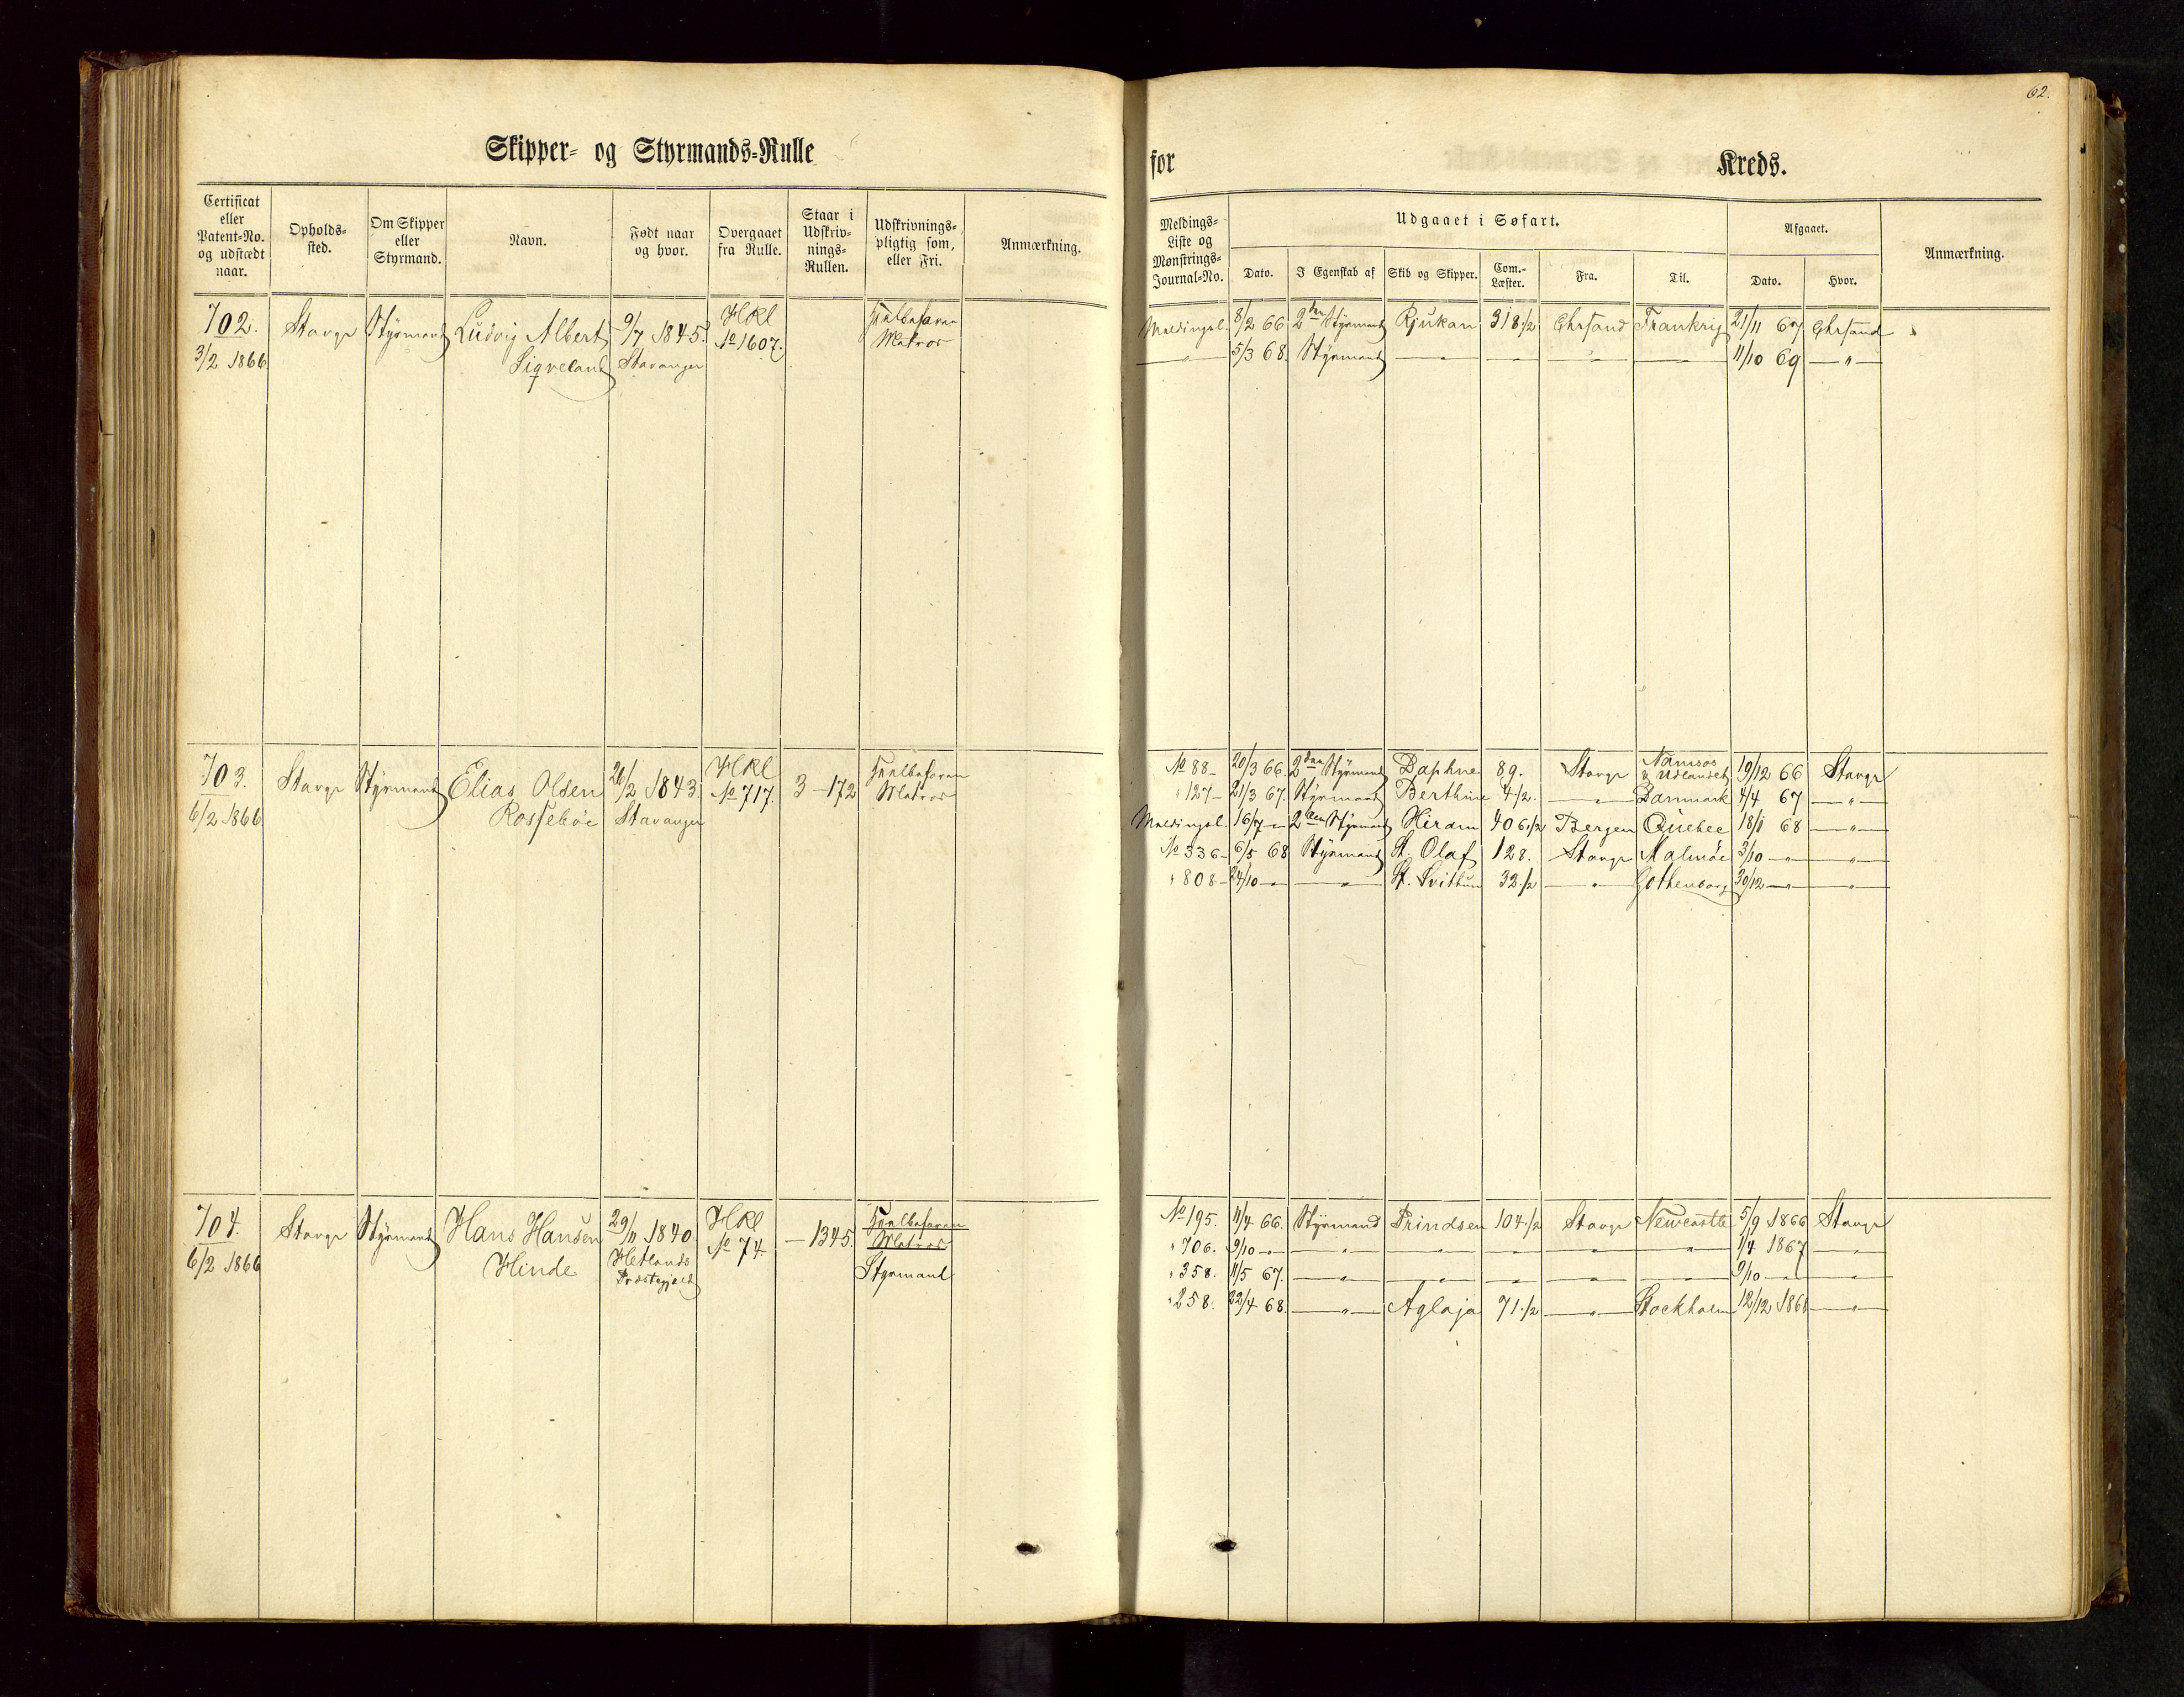 62.
Skipper- og Styrmands-Rulle
for Kreds.
Certificat eller Patent-No. og udstædt naar.
Opholds- sted.
Om Skipper eller Styrmand.
Navn.
Født naar og hvor.
Overgaaet fra Rulle.
Staar i Udskriv- nings- Rullen.
Udskrivnings- pligtig som, eller Fri.
Anmærkning.
Meldings- Liste og Mønstrings- Journal-No.
Udgaaet i Søfart.
Dato.
I Egenskab af
Skib og Skipper.
Com.- Læster.
Fra.
Til.
Afgaaet.
Dato.
Hvor.
Anmærkning.
702. Stavgr Styrmand Ludvig Albert 9/7 1845. HKl Hvalbefaren
3/2 1866 Sigveland Stavanger No 1607. Matros
Meldingsl. 8/2 66 2den Styrmand Rjukan 318 1/2 Chrsand Frankrig 21/11 67 Chrsand
— " — 5/3 68. Styrmand — — — " — — 11/10 69 — " —
703. Stavgr Styrmand Elias Olsen 26/2 1843. HKl 3 - 172 Hvalbefaren
6/2 1866 Rossebøe Stavanger No 717. Matros
No 88 - 20/3 66. 2den Styrmand Daphne 89. Stavgr Namsos & Udlandet 19/12 66 Stavgr
" 127 - 21/3 67. Styrmand Berthine 4 1/2. — " — Danmark 4/4 67 — " —
Meldingsl. 16/7 — " — 2den Styrmand Hiram 406 1/2 Bergen Quebec 18/1 68 — " —
No 336 - 6/5 68 Styrmand St. Olaf 128. Stavgr Malmøe 3/10 — " — — " —
" 808 - 24/10 — " — — " — St. Svithun 32 1/2 — " — Gothenborg 30/12 — " — — " —
704. Stavgr Styrmand Hans Hansen 29/11 1840. HKl — 1345. Hvalbefaren
6/2 1866 Hinde Hetlands No 74. Matros
Præstegjeld Styrmand
No 195. 11/4 66. Styrmand Prindsen 104 1/2 Stavgr Newcastle 5/9 1866 Stavgr
" 706. 9/10 — " — — " — — " — — " — — " — — " — 1/4 1867 — " —
" 358. 11/5 67. — " — — " — — " — — " — — " — 9/10 — " — — " —
" 258. 22/4 68. — " — Aglaja 71 1/2 — " — Stockholm 12/12 1868 — " —